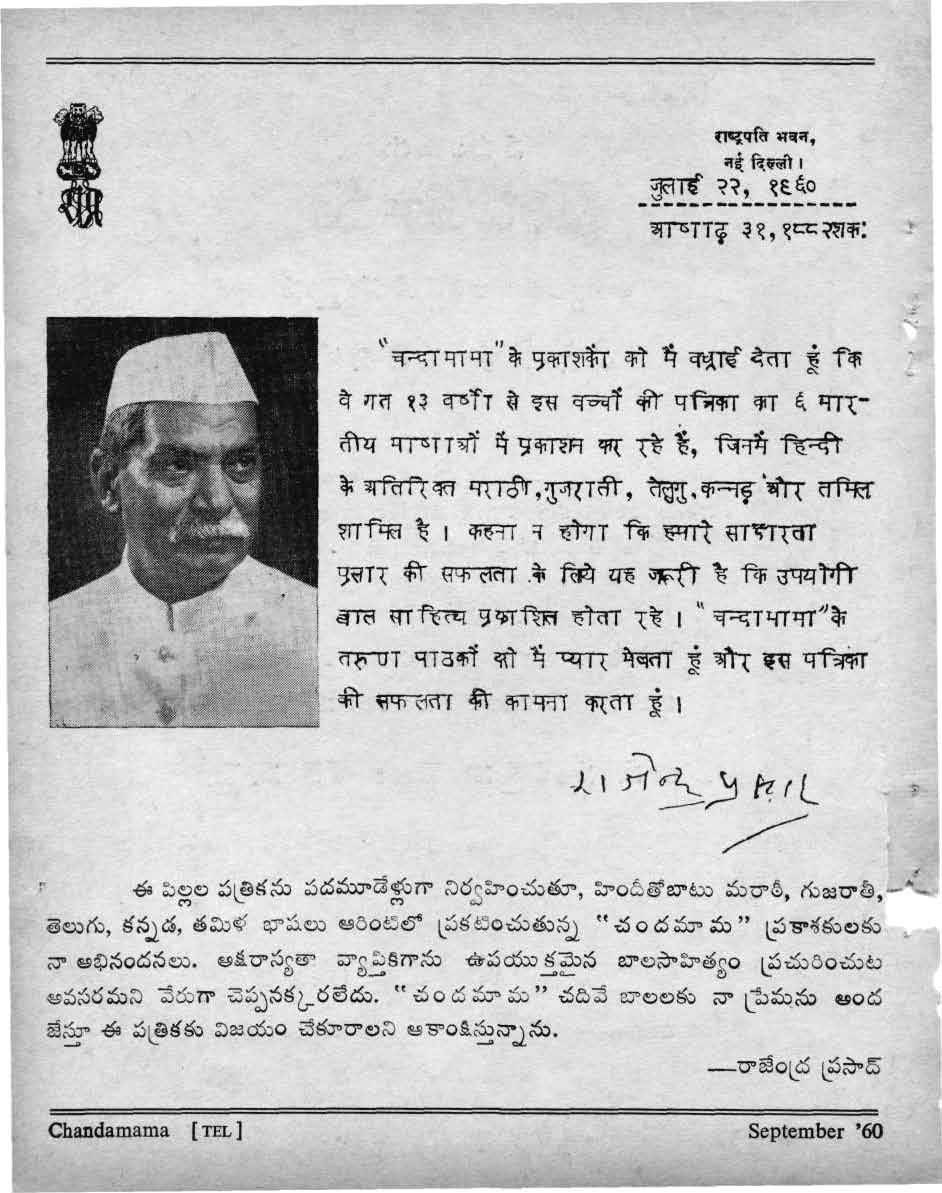 राष्ट्रपति भवन,
नई दिल्ली ।
जुलाई २२, १९६०
आषाढ़ ३१, १८८२शक:
"चन्दामामा" के प्रकाशकों को मैं बधाई देता हूं कि
वे गत १३ वर्षों से इस बच्चों की पत्रिका का ६ भार-
तीय भाषाओं में प्रकाशन कर रहे हैं, जिनमें हिन्दी
के अतिरिक्त मराठी, गुजराती, तेलुगु, कन्नड़ और तमिल
शामिल है । कहना न होगा कि हमारे साक्षरता
प्रसार की सफलता के लिये यह जरूरी है कि उपयोगी
बाल साहित्य प्रकाशित होता रहे । "चन्दामामा" के
तरुण पाठकों को मैं प्यार भेजता हूं और इस पत्रिका
की सफलता की कामना करता हूं ।
राजेन्द्र प्रसाद
ఈ పిల్లల పత్రికను పదమూడేళ్లుగా నిర్వహించుతూ, హిందీతోబాటు మరాఠీ, గుజరాతీ,
తెలుగు, కన్నడ, తమిళ భాషలు ఆరింటిలో ప్రకటించుతున్న "చందమామ" ప్రకాశకులకు
నా అభినందనలు. అక్షరాస్యతా వ్యాప్తికిగాను ఉపయుక్తమైన బాలసాహిత్యం ప్రచురించుట
అవసరమని వేరుగా చెప్పనక్కరలేదు. "చందమామ" చదివే బాలలకు నా ప్రేమను అంద
జేస్తూ ఈ పత్రికకు విజయం చేకూరాలని ఆకాంక్షిస్తున్నాను.
—రాజేంద్ర ప్రసాద్
Chandamama [TEL] September '60